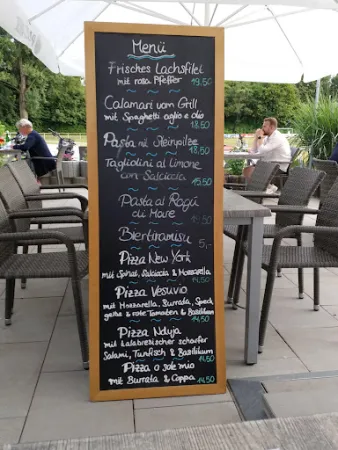 Menü
Frisches Lachsfilet
mit rosa Pfeffer 19.50
Calamari vom Grill
mit Spaghetti aglio e olio
18.50
Pasta mit Steinpilze
13.50
Tagliolini al limone
con Salsiccia
15.50
Pasta al Ragù
di Mare 14.50
Biertiramisu 5,-
Pizza New York
mit Spinat, Salsiccia & Mozzarella
14.50
Pizza Vesuvio
mit Mozzarella, Burrata, Speck
gelbe & rote Tomaten & Basilikum
14.50
Pizza Nduja
mit kalabresischer scharfer
Salami, Tunfisch & Basilikum
14.50
Pizza o sole mio
mit Burrata & Coppa 14.50